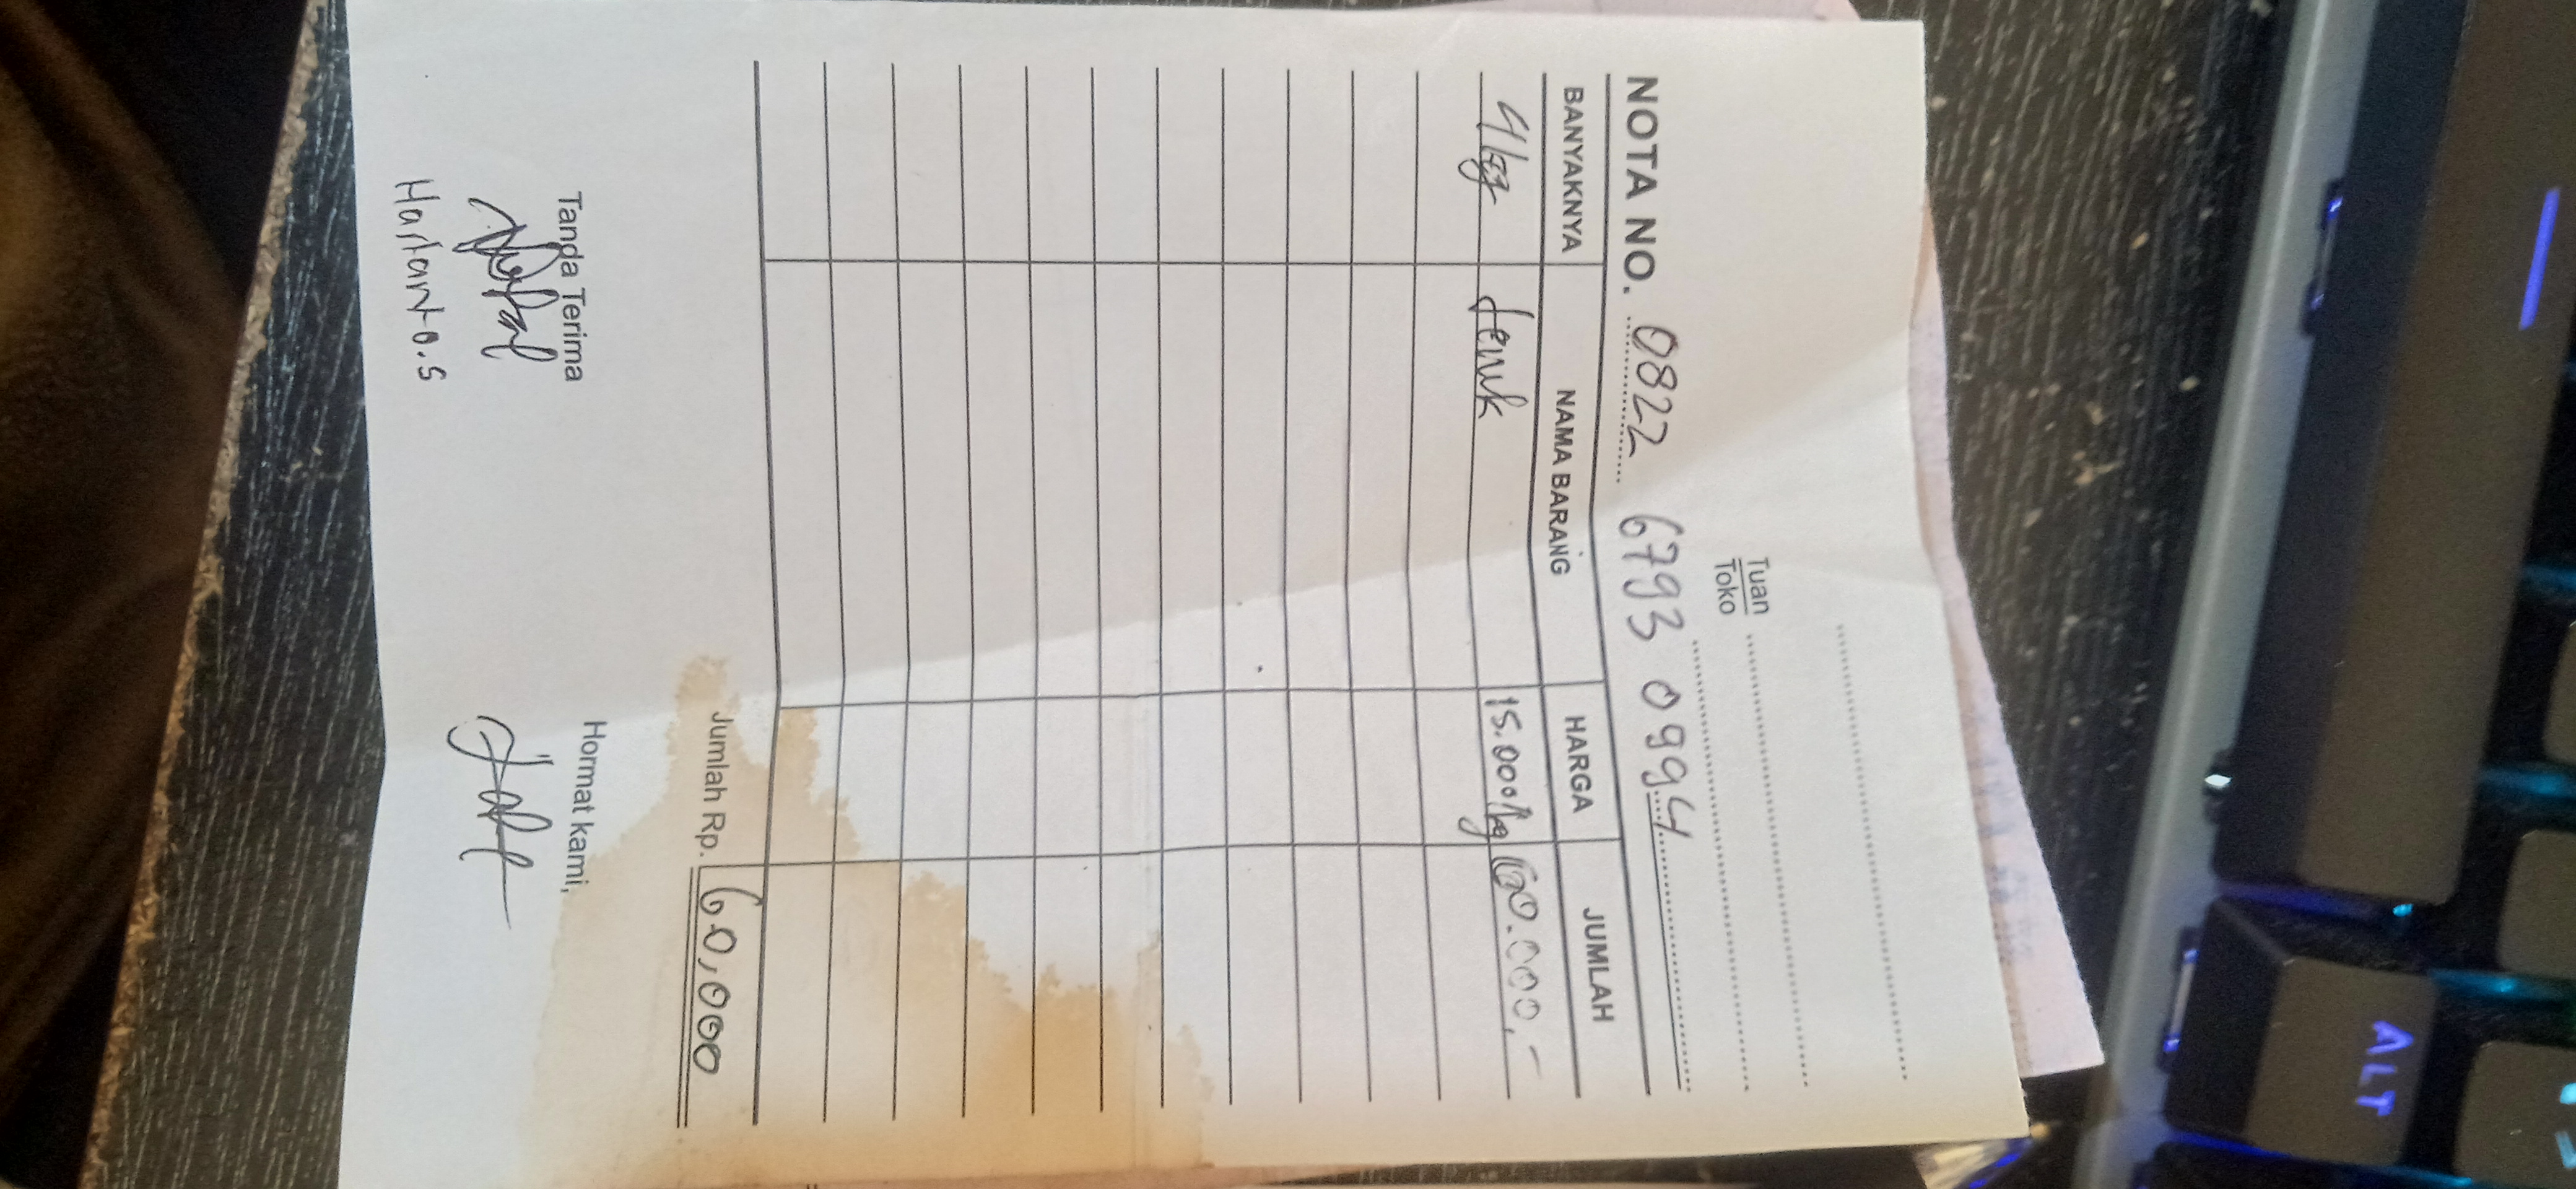 Tuan
Toko
NOTA NO. 0822 6793 0994
BANYAKNYA NAMA BARANG HARGA JUMLAH
4 kg Jeruk 15.000/kg 60.000,-
Jumlah Rp. 60,000
Tanda Terima Hormat kami,
Hartanto.S
ALT